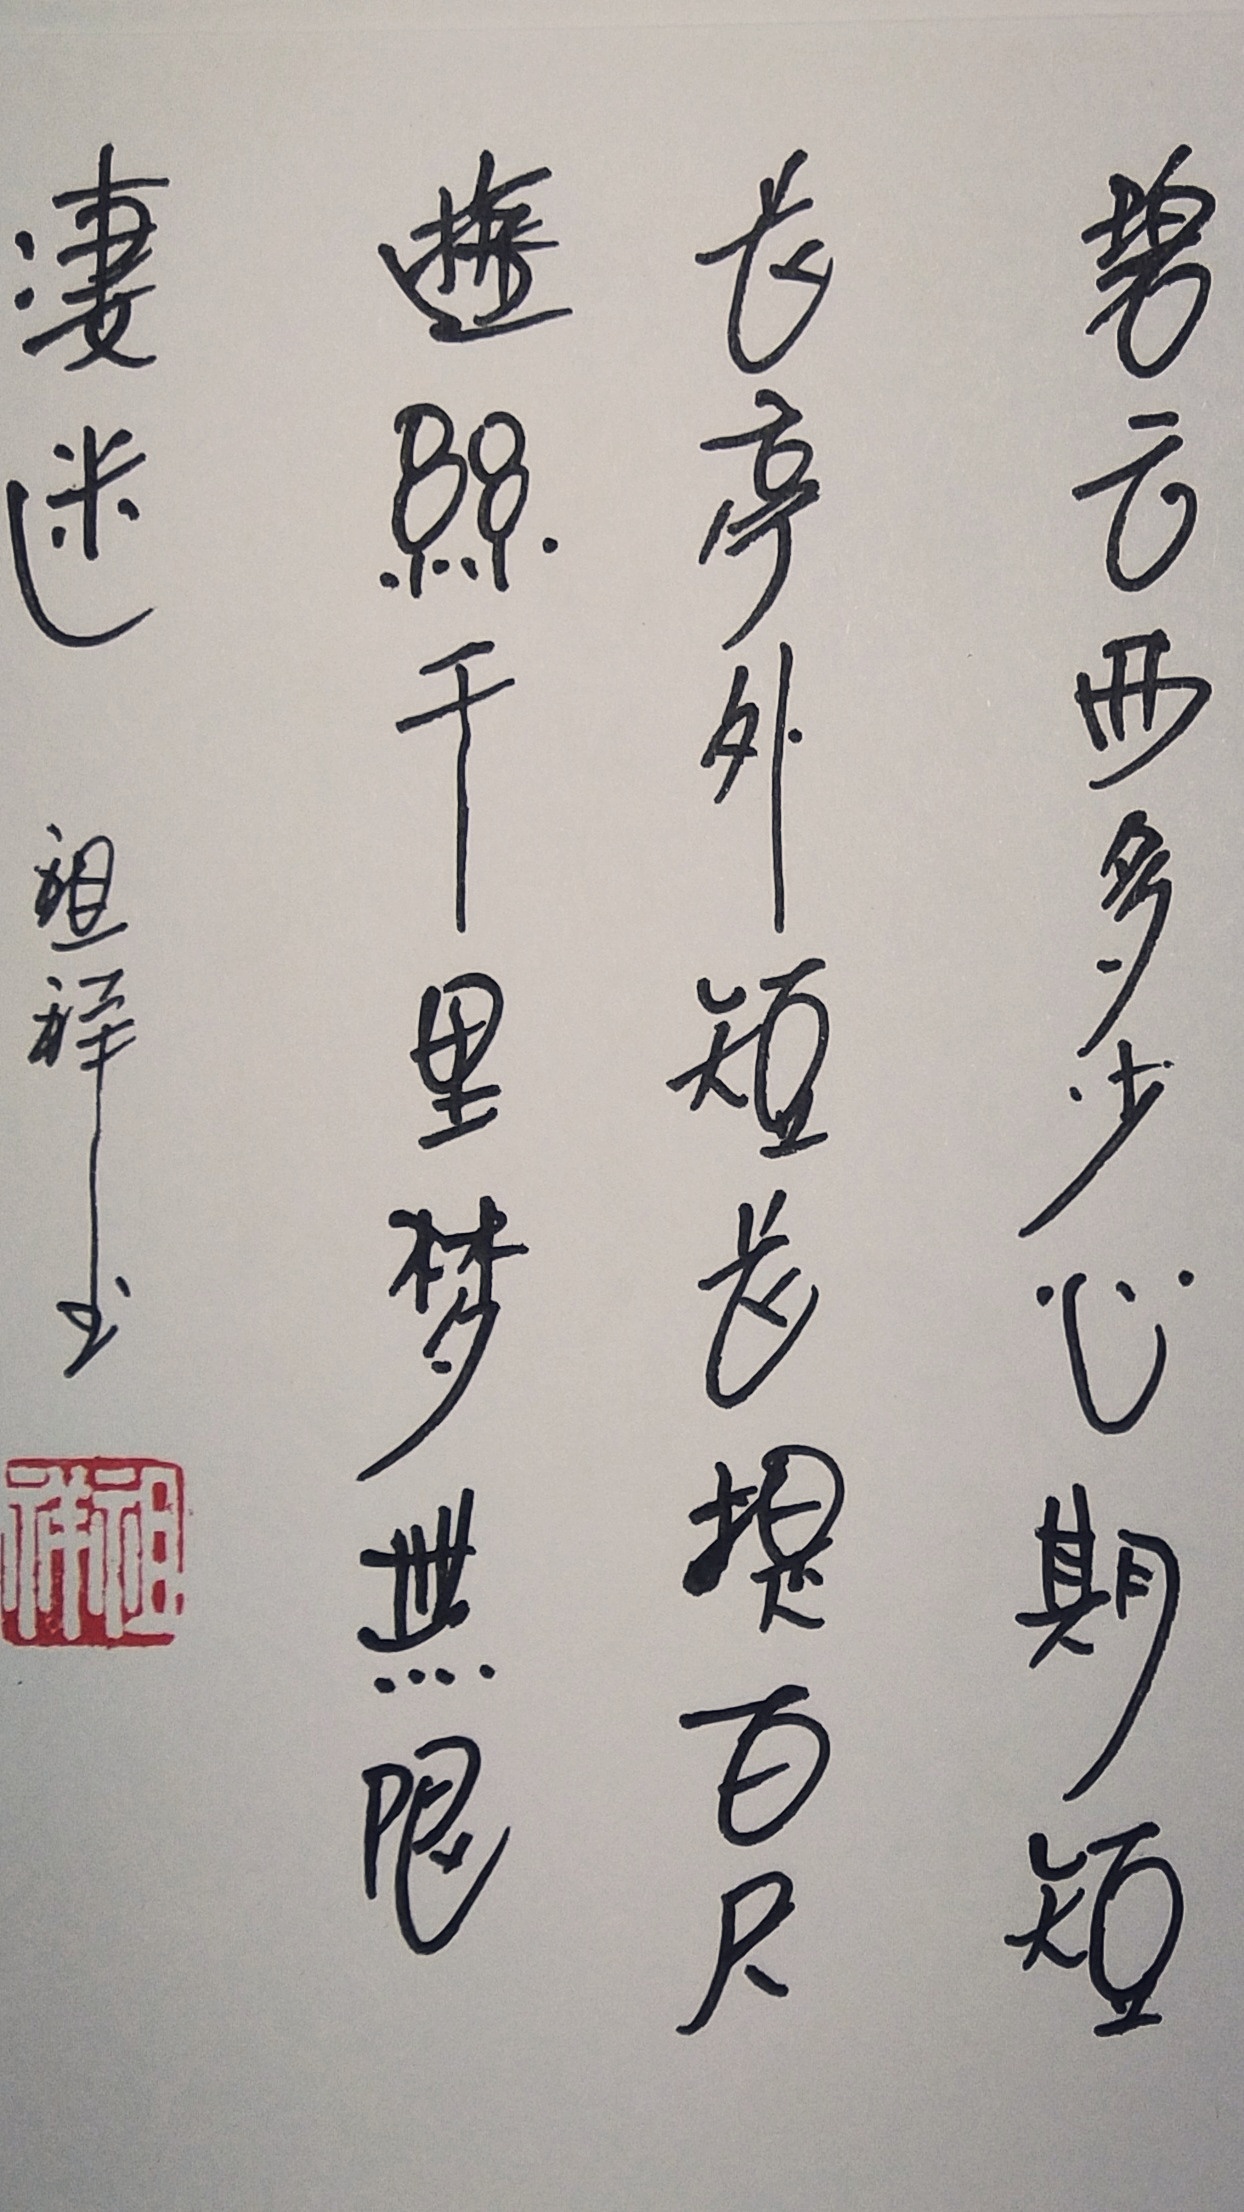 碧云西多少心期短
长亭外短长堤百尺
遊照千里梦無限
凄迷 祖祥书
祖祥